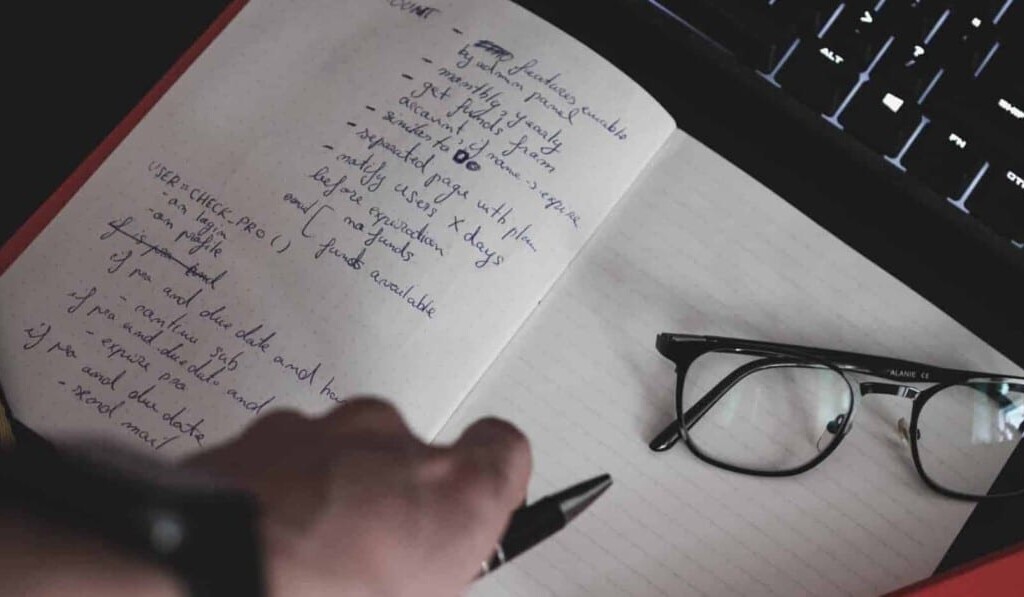 - features enable
by admin panel
- monthly, yearly
- get funds from
account, if name → expire
similar to DO
- separated page with plan
- notify users X days
before expiration
and [ no funds
funds available
USER = CHECK_PRO ()
- on login
- on profile
if pro and due date and
- continue sub
if pro and due date and
- expire pro
if pro and due date
- send mail
ALT
?
FN
ALANIE CE